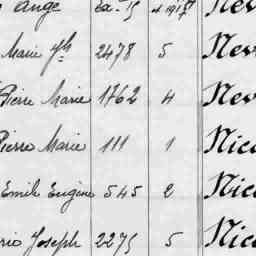 Ange
Marie Jh 2478 5 Nev
Pierre Marie 1762 4 Nev
Pierre Marie 111 1 Nico
Emile Eugène 545 2 Nico
Joseph 2275 5 Nico